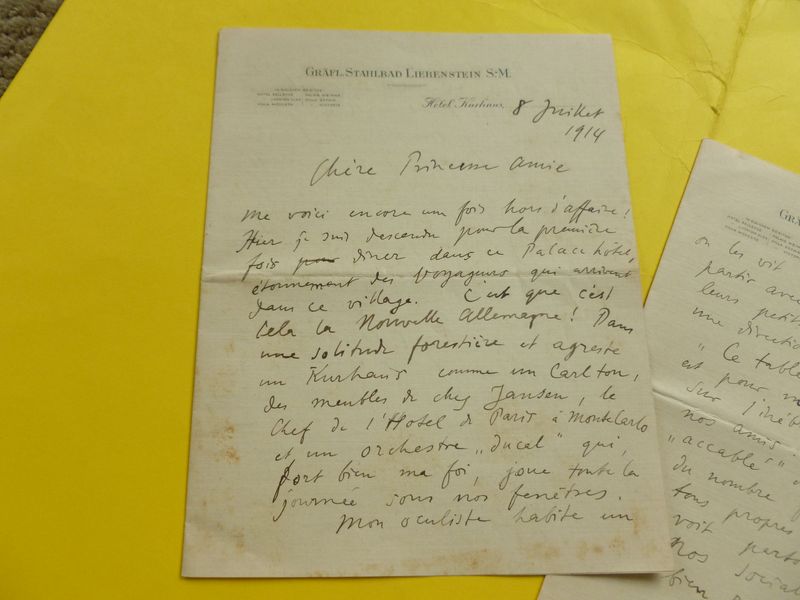 GRÄFL. STAHLBAD LIEBENSTEIN S.-M.
Hotel Kurhaus, 8 Juillet
1914
Chère Princesse amie
me voici encore un fois hors d'affaire!
Hier je suis descendu pour la première
fois pour diner dans ce Palace hôtel,
étonnement des voyageurs qui arrivent
dans ce village. C'est que c'est
cela la Nouvelle Allemagne! Dans
une solitude forestière et agreste
un Kurhaus comme un Carlton,
des meubles de chez Jansen, le
Chef de l'Hotel de Paris à Monte Carlo
et un orchestre „ducal" qui,
fort bien ma foi, joue toute la
journée sous nos fenêtres.
Mon oculiste habite un
GRÄ
on les vit
partir avec
leurs petit
une direction
"Ce table
est pour
sur l'iné
nos amis
„accables"
du nombre
tons propres
voit parto
Nos social
bien